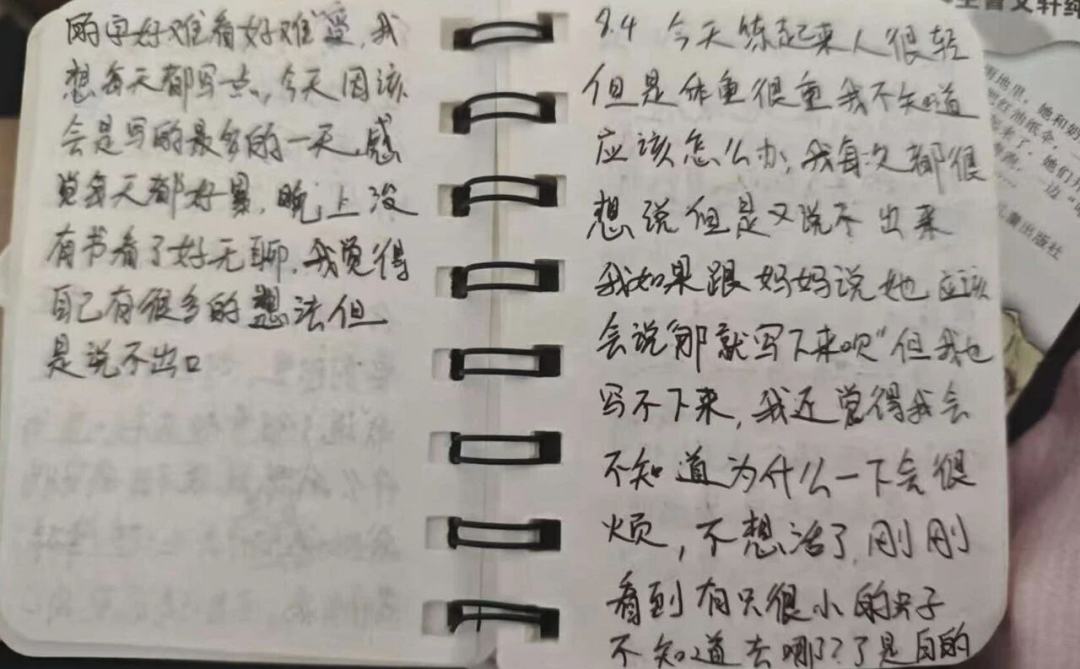 的字好难看好难
想每天都写一点，今天因该
会是写的最多的一天，感
觉每天都好累，晚上没
有书看了好无聊，我觉得
自己有很多的想法但
是说不出口
8.4 今天练起来人很轻
但是体重很重我不知道
应该怎么办，我每次都很
想说但是又说不出来
我如果跟妈妈说她应该
会说"那就写下来呗"但我也
写不下来，我还觉得我会
不知道为什么一下会很
烦，不想活了，刚刚
看到有只很小的
不知道去哪了是白的
雨地里，她和奶
把红油纸伞，一
儿童出版社